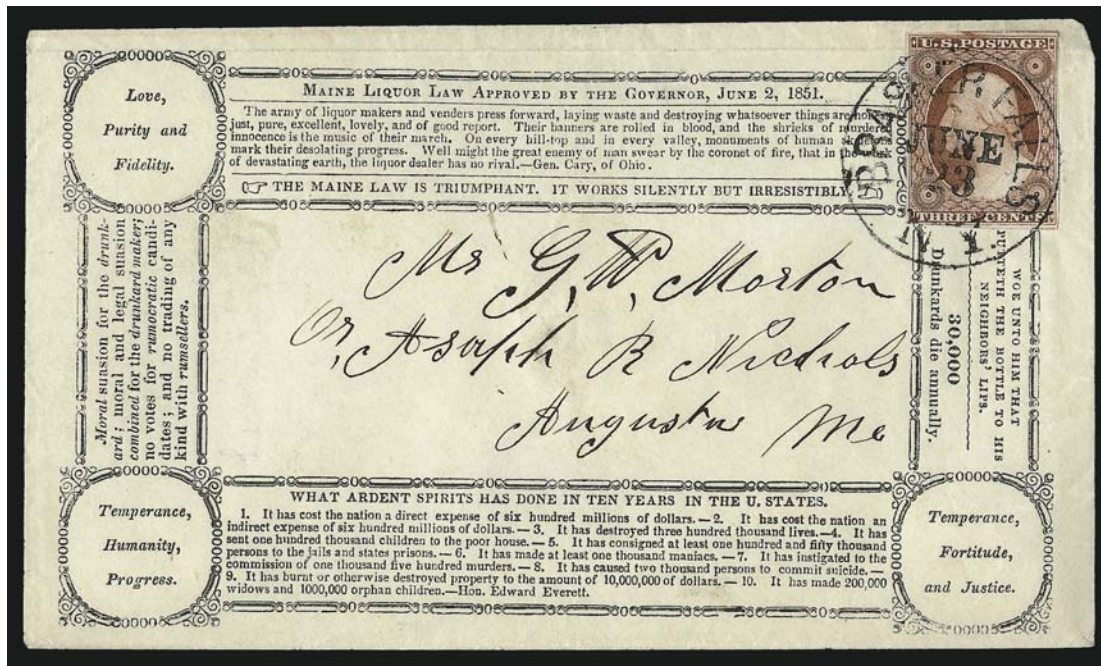 Love,
Purity and
Fidelity.
MAINE LIQUOR LAW APPROVED BY THE GOVERNOR, JUNE 2, 1851.
The army of liquor makers and venders press forward, laying waste and destroying whatsoever things are honest,
just, pure, excellent, lovely, and of good report. Their banners are rolled in blood, and the shrieks of murdered
innocence is the music of their march. On every hill-top and in every valley, monuments of human skeletons
mark their desolating progress. Well might the great enemy of man swear by the coronet of fire, that in the work
of devastating earth, the liquor dealer has no rival.—Gen. Cary, of Ohio.
☞ THE MAINE LAW IS TRIUMPHANT. IT WORKS SILENTLY BUT IRRESISTIBLY.
U.S. POSTAGE
THREE CENTS
FALLS
JUNE
N.Y.
Moral suasion for the drunk-
ard; moral and legal suasion
combined for the drunkard maker;
no votes for rumocratic candi-
dates; and no trading of any
kind with rumsellers.
Mr G, W, Morton
Or, Asaph R Nichols
Augusta Me
WOE UNTO HIM THAT
PUTETH THE BOTTLE TO HIS
NEIGHBORS' LIPS.
30,000
Drunkards die annually.
Temperance,
Humanity,
Progress.
WHAT ARDENT SPIRITS HAS DONE IN TEN YEARS IN THE U. STATES.
1. It has cost the nation a direct expense of six hundred millions of dollars.—2. It has cost the nation an
indirect expense of six hundred millions of dollars.—3. It has destroyed three hundred thousand lives.—4. It has
sent one hundred thousand children to the poor house.—5. It has consigned at least one hundred and fifty thousand
persons to the jails and states prisons.—6. It has made at least one thousand maniacs.—7. It has instigated to the
commission of one thousand five hundred murders.—8. It has caused two thousand persons to commit suicide.—
9. It has burnt or otherwise destroyed property to the amount of 10,000,000 of dollars.—10. It has made 200,000
widows and 1000,000 orphan children.—Hon. Edward Everett.
Temperance,
Fortitude,
and Justice.